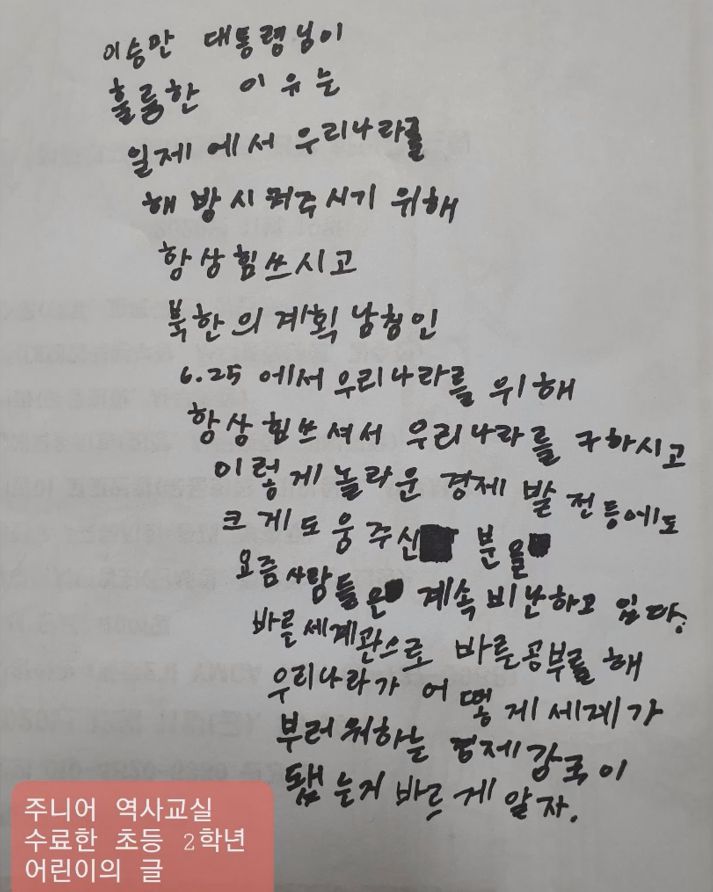 이승만 대통령님이
훌륭한 이유는
일제에서 우리나라를
해방시켜주시기 위해
항상힘쓰시고
북한의계획남침인
6.25에서우리나라를 위해
항상힘쓰셔서 우리나라를 구하시고
이렇게놀라운 경제 발전등에도
크게도움주신 분을
요즘사람들은 계속비난하고 있다.
바른세계관으로 바른공부를해
우리나라가 어떻게세계가
부러워하는 경제강국이
됐는지 바르게 알자.
주니어 역사교실
수료한 초등 2학년
어린이의 글